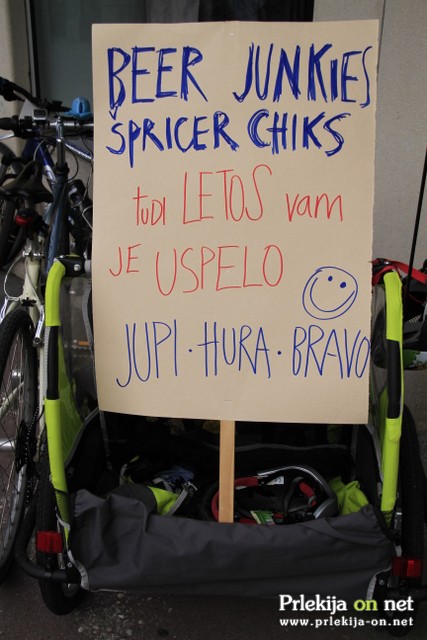 BEER JUNKIES
ŠPRICER CHIKS
tuDI LETOS vam
JE USPELO
JUPI · HURA · BRAVO
Prlekija on net
www.prlekija-on.net